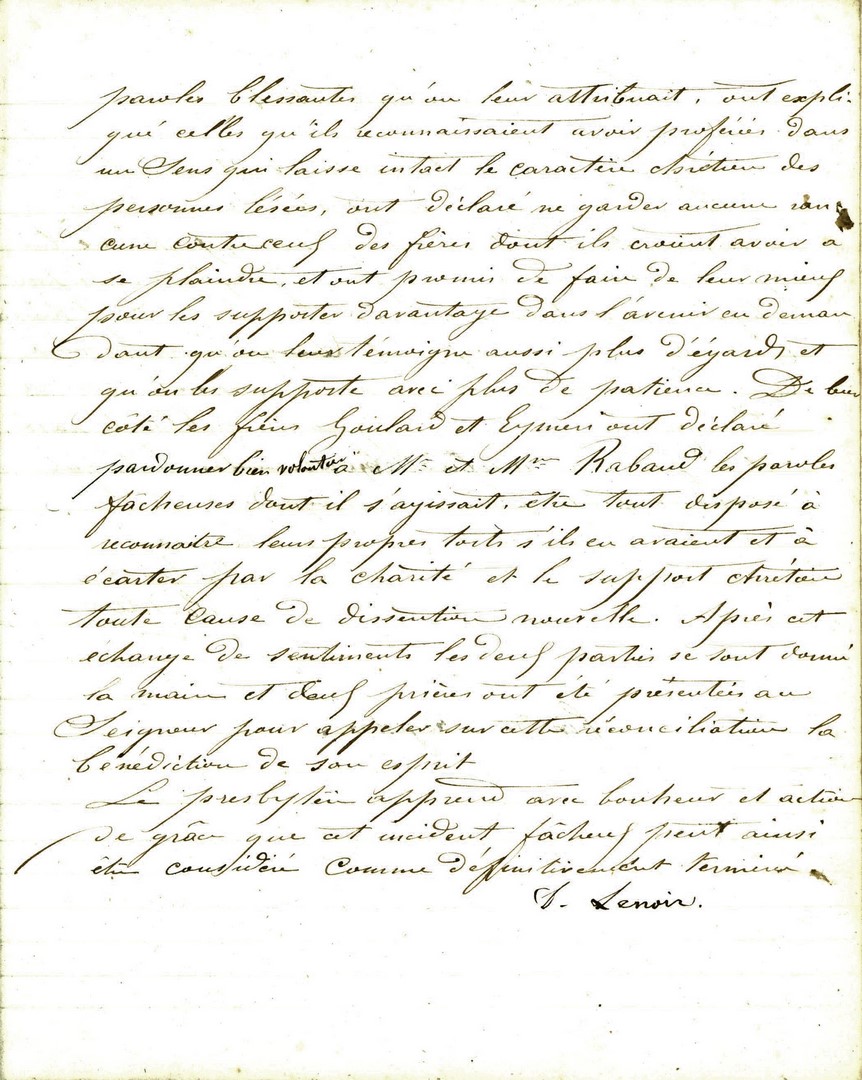 paroles blessantes qu'on leur attribuait, ont expli-
qué celles qu'ils reconnaissaient avoir proférées dans
un sens qui laisse intact le caractère chrétien des
personnes lésées, ont déclaré ne garder aucune ran
cune contre ceux des frères dont ils croient avoir à
se plaindre, et ont promis de faire de leur mieux
pour les supporter davantage dans l'avenir en deman
dant qu'on leur témoigne aussi plus d'égards et
qu'on les supporte avec plus de patience. De leur
côté les frères Goulard et Eymeri ont déclaré
pardonner bien volontiers à Mr et Mme Rabaud les paroles
fâcheuses dont il s'agissait, être tout disposé à
reconnaitre leurs propres torts s'ils en avaient et à
écarter par la charité et le support chrétien
toute cause de dissention nouvelle. Après cet
échange de sentiments les deux parties se sont donné
la main et deux prières ont été présentées au
Seigneur pour appeler sur cette réconciliation la
bénédiction de son esprit
Le presbytère apprend avec bonheur et action
de grâce que cet incident fâcheux peut ainsi
être considéré comme définitivement terminé.
Lenoir.